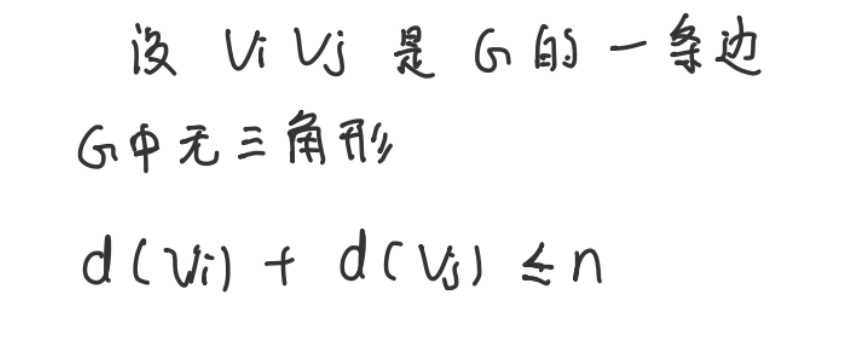 设 Vi Vj 是 G 的一条边
G中无三角形
d(Vi) + d(Vj) ≤ n